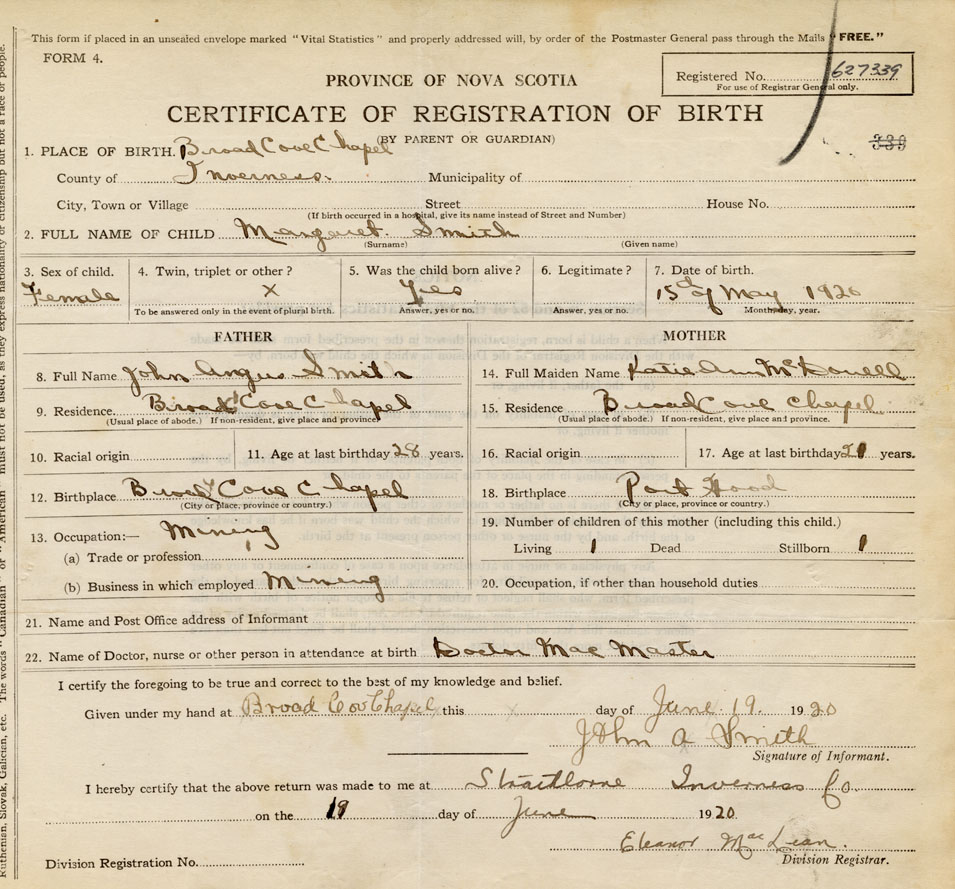 This form if placed in an unsealed envelope marked "Vital Statistics" and properly addressed will, by order of the Postmaster General pass through the Mails "FREE."
FORM 4.
Registered No. 627339
For use of Registrar General only.
PROVINCE OF NOVA SCOTIA
CERTIFICATE OF REGISTRATION OF BIRTH
(BY PARENT OR GUARDIAN)
339
1. PLACE OF BIRTH. Broad Cove Chapel
County of Inverness. Municipality of
City, Town or Village Street House No.
(If birth occurred in a hospital, give its name instead of Street and Number)
2. FULL NAME OF CHILD Margaret Smith
(Surname) (Given name)
3. Sex of child. 4. Twin, triplet or other? 5. Was the child born alive? 6. Legitimate? 7. Date of birth.
Female x Yes 15th of May 1920
To be answered only in the event of plural birth. Answer, yes or no. Answer, yes or no. Month, day, year.
FATHER MOTHER
8. Full Name John Angus Smith 14. Full Maiden Name Katie Ann McDonell
9. Residence. Broad Cove Chapel 15. Residence Broad Cove Chapel
(Usual place of abode.) If non-resident, give place and province (Usual place of abode.) If non-resident, give place and province.
10. Racial origin 11. Age at last birthday 28 years. 16. Racial origin 17. Age at last birthday 21 years.
12. Birthplace Broad Cove Chapel 18. Birthplace Port Hood
(City or place, province or country.) (City or place, province or country.)
13. Occupation:— Mining 19. Number of children of this mother (including this child.)
(a) Trade or profession Living 1 Dead Stillborn 1
(b) Business in which employed Mining 20. Occupation, if other than household duties
21. Name and Post Office address of Informant
22. Name of Doctor, nurse or other person in attendance at birth Doctor Mac Master
I certify the foregoing to be true and correct to the best of my knowledge and belief.
Given under my hand at Broad Cov Chapel this day of June 19. 1920
John A Smith
Signature of Informant.
I hereby certify that the above return was made to me at Inverness Co.
on the 19 day of June 1920
Eleanor MacLean.
Division Registrar.
Division Registration No.
Ruthenian, Slovak, Galician, etc. The words "Canadian" or "American" must not be used, as they express nationality or citizenship but not a race or people.